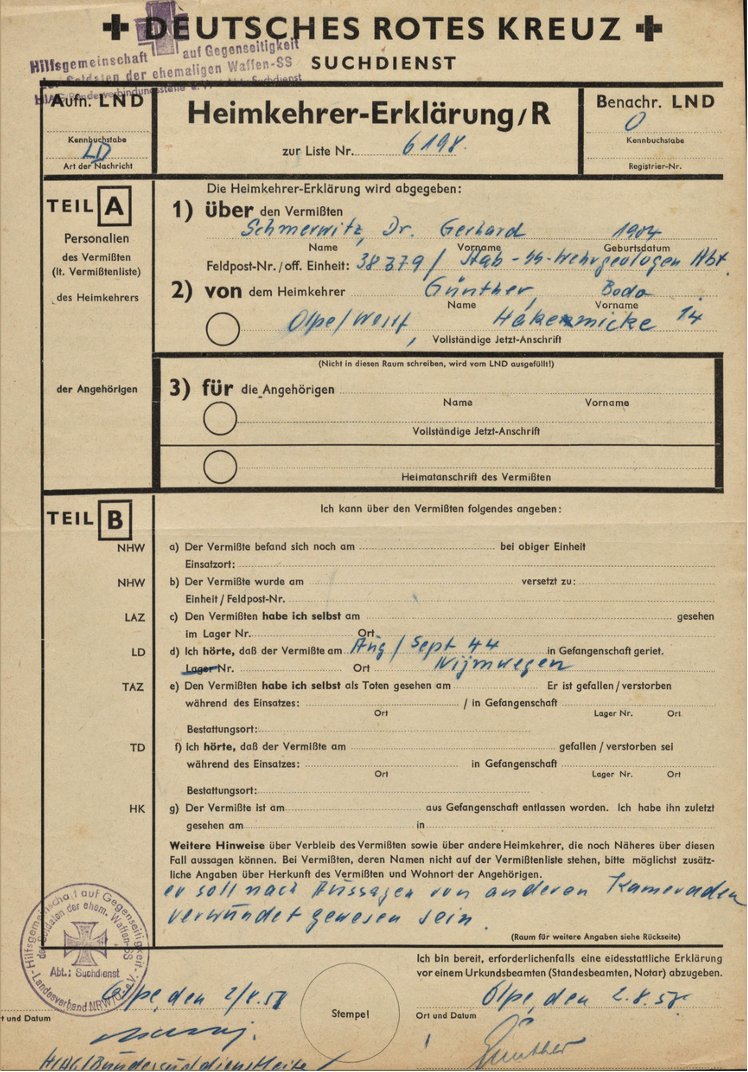 DEUTSCHES ROTES KREUZ
SUCHDIENST
Hilfsgemeinschaft auf Gegenseitigkeit
der Soldaten der ehemaligen Waffen-SS
HIAG-Bundesverbindungsstelle Suchdienst
Aufn. LND
Kennbuchstabe
LD
Art der Nachricht
Heimkehrer-Erklärung/R
zur Liste Nr. 6198.
Benachr. LND
0
Kennbuchstabe
Registrier-Nr.
TEIL A
Personalien
des Vermißten
(lt. Vermißtenliste)
des Heimkehrers
der Angehörigen
Die Heimkehrer-Erklärung wird abgegeben:
1) über den Vermißten
Schmerwitz, Dr. Gerhard 1904
Name Vorname Geburtsdatum
Feldpost-Nr./off. Einheit: 38379 / Stab-SS-Wehrgeologen Abt.
2) von dem Heimkehrer Günther, Bodo
Name Vorname
Olpe/Westf, 14
Vollständige Jetzt-Anschrift
(Nicht in diesen Raum schreiben, wird vom LND ausgefüllt!)
3) für die Angehörigen
Name Vorname
Vollständige Jetzt-Anschrift
Heimatanschrift des Vermißten
TEIL B
Ich kann über den Vermißten folgendes angeben:
NHW a) Der Vermißte befand sich noch am bei obiger Einheit
Einsatzort:
NHW b) Der Vermißte wurde am versetzt zu:
Einheit/Feldpost-Nr.
LAZ c) Den Vermißten habe ich selbst am gesehen
im Lager Nr. Ort
LD d) Ich hörte, daß der Vermißte am Aug/Sept 44 in Gefangenschaft geriet.
Lager Nr. Ort Nijmwegen
TAZ e) Den Vermißten habe ich selbst als Toten gesehen am Er ist gefallen/verstorben
während des Einsatzes: / in Gefangenschaft
Ort Lager Nr. Ort
Bestattungsort:
TD f) Ich hörte, daß der Vermißte am gefallen/verstorben sei
während des Einsatzes: in Gefangenschaft
Ort Lager Nr. Ort
Bestattungsort:
HK g) Der Vermißte ist am aus Gefangenschaft entlassen worden. Ich habe ihn zuletzt
gesehen am in
Weitere Hinweise über Verbleib des Vermißten sowie über andere Heimkehrer, die noch Näheres über diesen
Fall aussagen können. Bei Vermißten, deren Namen nicht auf der Vermißtenliste stehen, bitte möglichst zusätz-
liche Angaben über Herkunft des Vermißten und Wohnort der Angehörigen.
er soll nach Aussagen von anderen Kameraden
verwundet gewesen sein.
(Raum für weitere Angaben siehe Rückseite)
Hilfsgemeinschaft auf Gegenseitigkeit
der Soldaten der ehem. Waffen-SS
Abt.: Suchdienst
Landesverband NRW
Ich bin bereit, erforderlichenfalls eine eidesstattliche Erklärung
vor einem Urkundsbeamten (Standesbeamten, Notar) abzugeben.
Olpe, den 2/8.57
t und Datum
Stempel
Olpe, den 2.8.57
Ort und Datum
Günther
HIAG/Bundessuchdienstleite